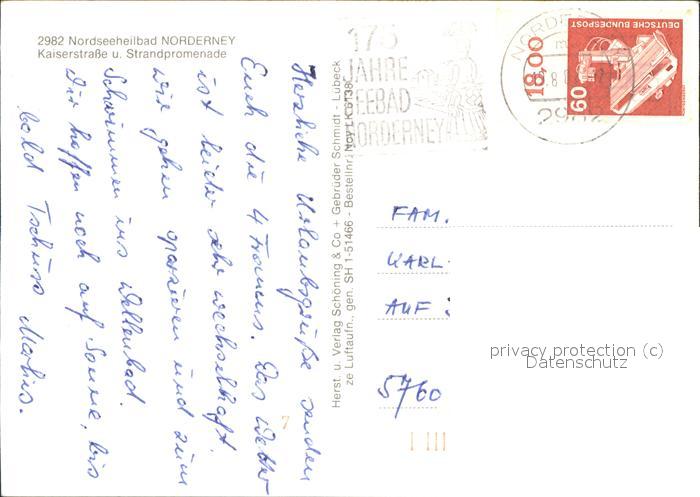 2982 Nordseeheilbad NORDERNEY
Kaiserstraße u. Strandpromenade
Herzliche Urlaubsgrüße senden
Euch die 4 Das Wetter
ist leider sehr wechselhaft.
Wir gehen spazieren und zum
Schwimmen ins Wellenbad.
Wir hoffen noch auf Sonne, bis
bald Tschüss
Herst. u. Verlag Schöning & Co + Gebrüder Schmidt - Lübeck
ze Luftaufn., gen. SH 1-51466 - Bestellnr.: Nov LK 6138
175
JAHRE
SEEBAD
NORDERNEY
NORDERNEY
2982
DEUTSCHE BUNDESPOST
60
18,00
FAM.
KARL
AUF :
5760
privacy protection (c)
Datenschutz
7